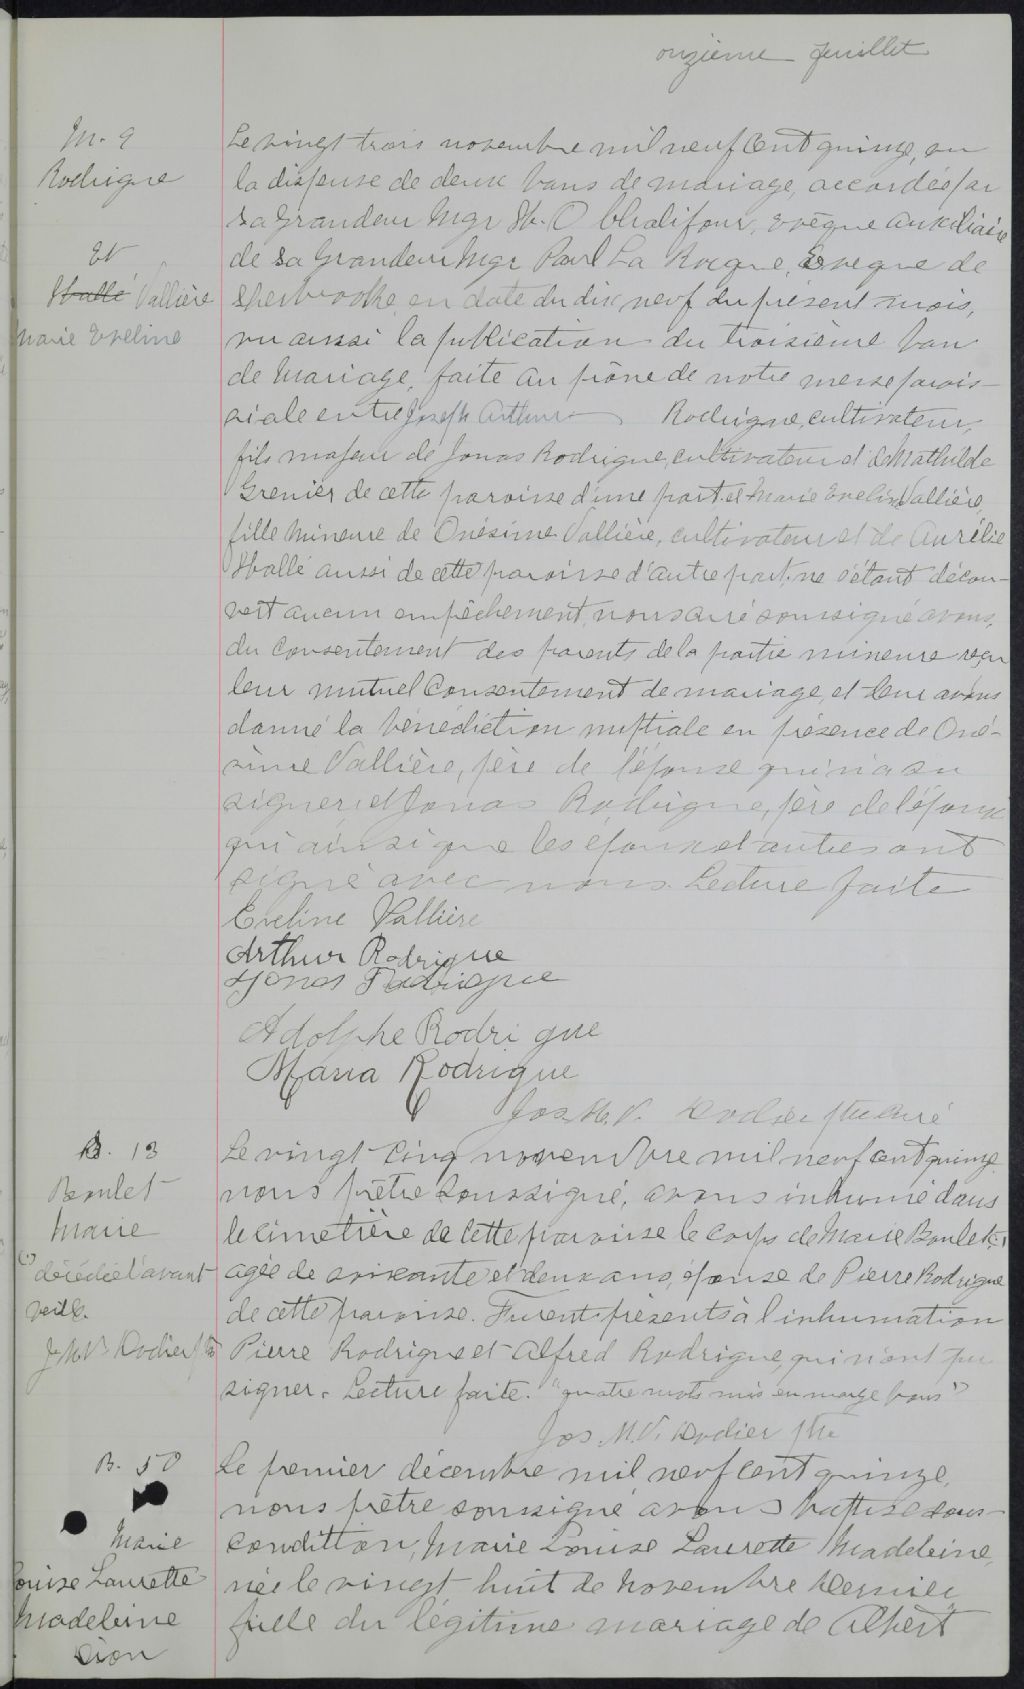 onzième feuillet
M. 9
Rodrigue
et
Hallé Vallière
Marie Eveline
Le vingt trois novembre mil neuf cent quinze, vu
la dispense de deux bans de mariage, accordée par
Sa Grandeur Mgr H. O Chalifoux, Evêque auxiliaire
de Sa Grandeur Mgr Paul La Rocque, Evêque de
Sherbrooke, en date du dix neuf du présent mois,
vu aussi la publication du troisième ban
de mariage, faite au prône de notre messe parois-
siale entre Joseph Arthur Rodrigue, cultivateur,
fils majeur de Jonas Rodrigue, cultivateur et de Mathilde
Grenier de cette paroisse d'une part, et Marie Eveline Vallière,
fille mineure de Onésime Vallière, cultivateur et de Aurélie
Hallé aussi de cette paroisse d'autre part, ne s'étant décou-
vert aucun empêchement, nous curé soussigné avons,
du consentement des parents de la partie mineure reçu
leur mutuel consentement de mariage, et leur avons
donné la bénédiction nuptiale en présence de Oné-
sime Vallière, père de l'épouse qui n'a su
signer, et Jonas Rodrigue, père de l'époux
qui ainsi que les époux et autres ont
signé avec nous. Lecture faite
Eveline Vallière
Arthur Rodrigue
Jonas Rodrigue
Adolphe Rodrigue
Maria Rodrigue
Jos. M. V. Rodier ptre curé
S. 13
Boulet
Marie
(1) décédée l'avant
veille.
J. M. V. Rodier ptre
Le vingt-cinq novembre mil neuf cent quinze
nous prêtre soussigné, avons inhumé dans
le cimetière de cette paroisse le corps de Marie Boulet, (1)
agée de soixante et deux ans, épouse de Pierre Rodrigue
de cette paroisse. Furent présents à l'inhumation
Pierre Rodrigue et Alfred Rodrigue, qui n'ont pu
signer. Lecture faite. "quatre mots mis en marge bons"
Jos. M. V. Rodier ptre
B. 50
Marie
Louise Laurette
Madeleine
Cion
Le premier décembre mil neuf cent quinze,
nous prêtre soussigné avons baptisé sous-
condition, Marie Louise Laurette Madeleine,
née le vingt huit de novembre dernier
fille du légitime mariage de Albert